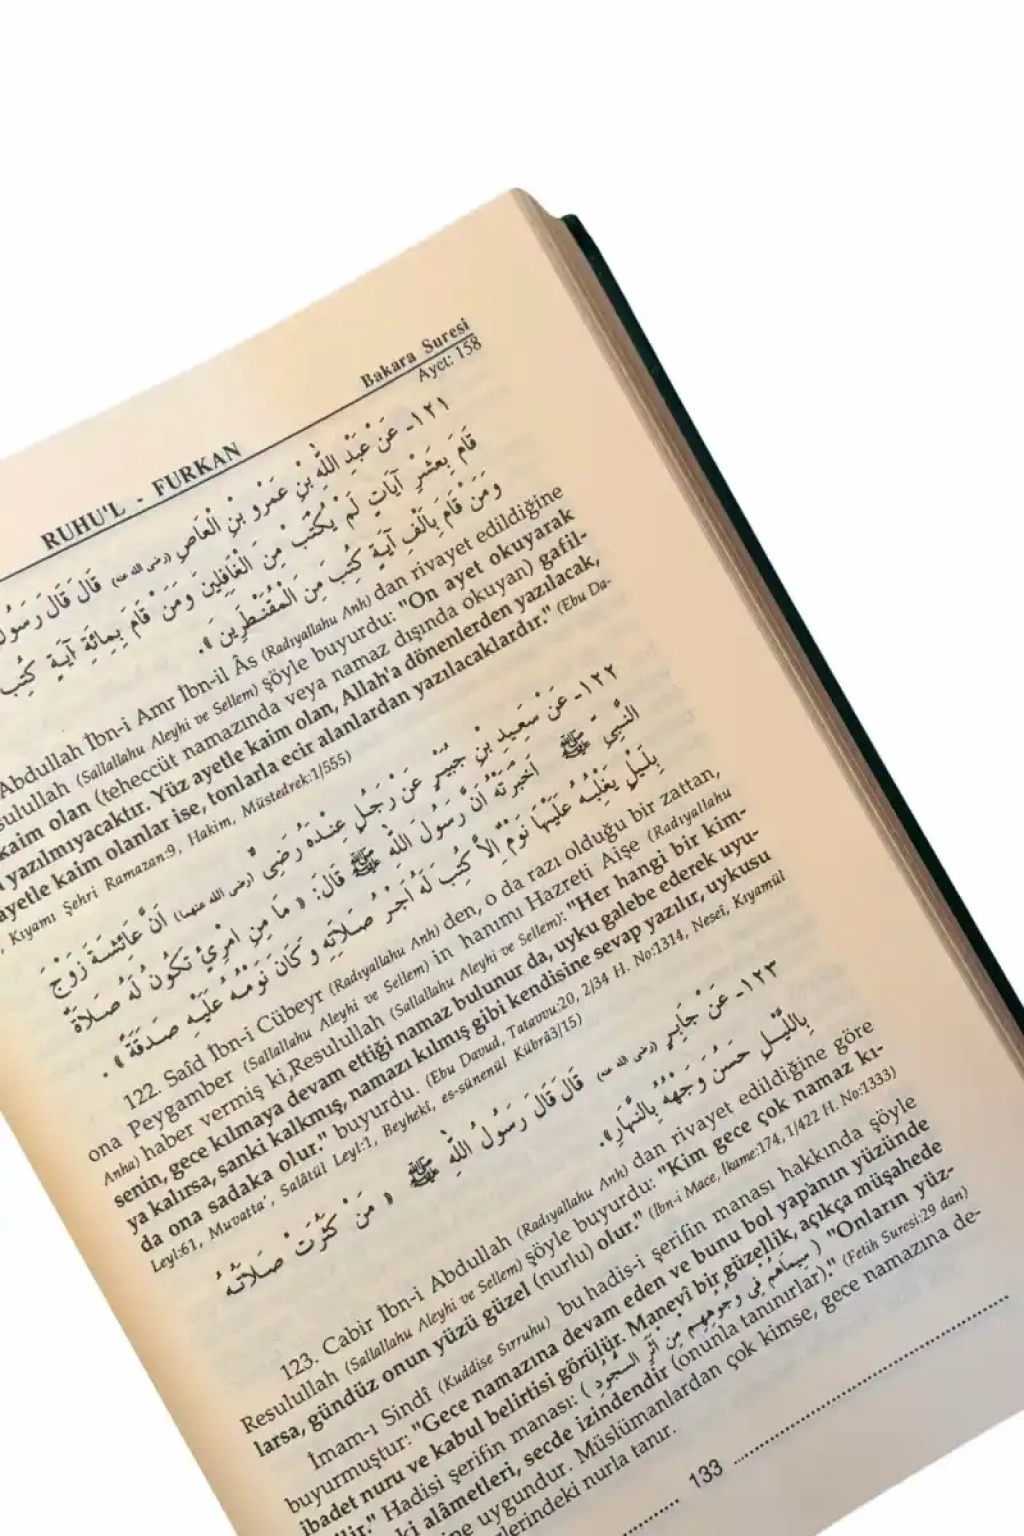 RUHU'L - FURKAN
Bakara Suresi
Ayet: 158
١٢١- عَنْ عَبْدِ اللّٰهِ بْنِ عَمْرِو بْنِ الْعَاصِ (رضى الله عنه) قَالَ قَالَ رَسُولُ
قَامَ بِعَشْرِ آيَاتٍ لَمْ يُكْتَبْ مِنَ الْغَافِلِينَ وَمَنْ قَامَ بِمِائَةِ آيَةٍ كُتِبَ
وَمَنْ قَامَ بِأَلْفِ آيَةٍ كُتِبَ مِنَ الْمُقَنْطَرِينَ ».
Abdullah İbn-i Amr İbn-il Âs (Radıyallahu Anh) dan rivayet edildiğine
sulullah (Sallallahu Aleyhi ve Sellem) şöyle buyurdu: "On ayet okuyarak
kaim olan (teheccüt namazında veya namaz dışında okuyan) gafil-
yazılmıyacaktır. Yüz ayetle kaim olan, Allah'a dönenlerden yazılacak,
ayetle kaim olanlar ise, tonlarla ecir alanlardan yazılacaklardır." (Ebu Da-
Kıyamı Şehri Ramazan:9, Hakim, Müstedrek:1/555)
١٢٢- عَنْ سَعِيدِ بْنِ جُبَيْرٍ عَنْ رَجُلٍ عِنْدَهُ رَضِيٍّ (رضى الله عنهما) أَنَّ عَائِشَةَ زَوْجَ
النَّبِيِّ ﷺ أَخْبَرَتْهُ أَنَّ رَسُولَ اللّٰهِ ﷺ قَالَ: « مَا مِنِ امْرِئٍ تَكُونُ لَهُ صَلَاةٌ
بِلَيْلٍ يَغْلِبُهُ عَلَيْهَا نَوْمٌ إِلَّا كُتِبَ لَهُ أَجْرُ صَلَاتِهِ وَكَانَ نَوْمُهُ عَلَيْهِ صَدَقَةً ».
122. Saîd İbn-i Cübeyr (Radıyallahu Anh) den, o da razı olduğu bir zattan,
ona Peygamber (Sallallahu Aleyhi ve Sellem) in hanımı Hazreti Aişe (Radıyallahu
Anha) haber vermiş ki,Resulullah (Sallallahu Aleyhi ve Sellem): "Her hangi bir kim-
senin, gece kılmaya devam ettiği namaz bulunur da, uyku galebe ederek uyu-
ya kalırsa, sanki kalkmış, namazı kılmış gibi kendisine sevap yazılır, uykusu
da ona sadaka olur." buyurdu. (Ebu Davud, Tatavvu:20, 2/34 H. No:1314, Neseî, Kıyamül
Leyl:61, Muvatta', Salâtül Leyl:1, Beyhekî, es-sünenül Kübrâ3/15)
١٢٣- عَنْ جَابِرٍ (رضى الله عنه) قَالَ قَالَ رَسُولُ اللّٰهِ ﷺ « مَنْ كَثُرَتْ صَلَاتُهُ
بِاللَّيْلِ حَسُنَ وَجْهُهُ بِالنَّهَارِ».
123. Cabir İbn-i Abdullah (Radıyallahu Anh) dan rivayet edildiğine göre
Resulullah (Sallallahu Aleyhi ve Sellem) şöyle buyurdu: "Kim gece çok namaz kı-
larsa, gündüz onun yüzü güzel (nurlu) olur." (İbn-i Mace, İkame:174, 1/422 H. No:1333)
İmam-ı Sindî (Kuddise Sırruhu) bu hadis-i şerifin manası hakkında şöyle
buyurmuştur: "Gece namazına devam eden ve bunu bol yap'anın yüzünde
ibadet nuru ve kabul belirtisi görülür. Manevî bir güzellik, açıkça müşahede
lir." Hadisi şerifin manası: ( سِيمَاهُمْ فِي وُجُوهِهِمْ مِنْ أَثَرِ السُّجُودِ ) "Onların yüz-
ki alâmetleri, secde izindendir (onunla tanınırlar)." (Fetih Suresi:29 dan)
ne uygundur. Müslümanlardan çok kimse, gece namazına de-
lerindeki nurla tanır.
133